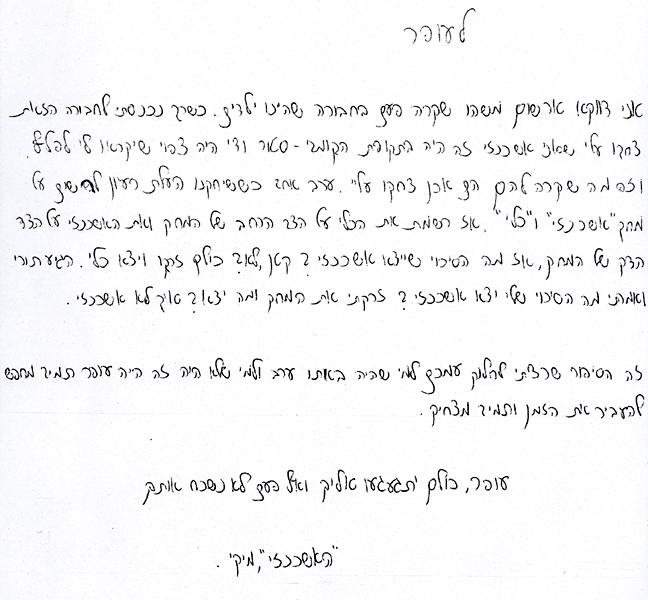 לעופר
אני דווקא ארשום משהו שקרה פעם בחבורה שהיינו ילדים. כשרק נכנסתי לחבורה הזאת
צחקו עלי שאני אשכנזי זה היה בתקופת הקומבי-סטור ודי היה צפוי שיקראו לי לפלף.
וזה מה שקרה להם הם אכן צחקו עליי. ערב אחד כששיחקנו העלת רעיון לרשום על
מחק "אשכנזי" ו"כלי". אז רשמת את הכלי על הצד הרחב של המחק ואת האשכנזי על הצד
הדק של המחק, אז מה הסיכוי שייצא אשכנזי? קטן, לא? כולם זרקו ויצא כלי. הגיע תורי
ואמרתי מה הסיכוי שלי יצא אשכנזי? זרקתי את המחק ומה יצא? איך לא אשכנזי.
זה הסיפור שרציתי לחלוק עמכם למי שהיה באותו ערב ולמי שלא היה זה היה עופר תמיד מחפש
להעביר את הזמן ותמיד מצחיק.
עופר, כולם יתגעגעו אליך ואף פעם לא נשכח אותך
"האשכנזי", מיקי.